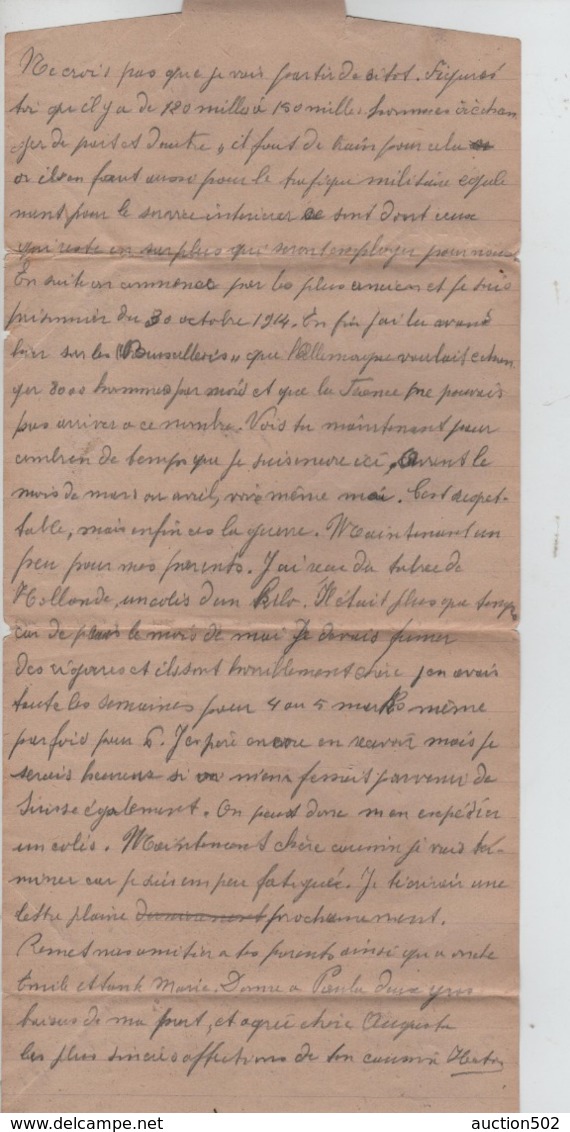 Ne crois pas que je vais partir de sitot. Figures
toi qu'il y a de 120 milles à 150 milles hommes à échan
ger de part et d'autre, il faut de train pour cela
or il en faut aussi pour le trafique militaire egale
ment pour le service interieur ce sont dont ceux
qui reste en surplus qui seront employer pour nous
En suite on commence par les plus anciens et je suis
prisonnier du 30 octobre 1914. En fin j'ai lu avant
hier sur les "Bruxellois" que l'Allemagne voulait echan
ger 8000 hommes par mois et que la France ne pouvais
pas arriver a ce nombre. Vois tu maintenant pour
combien de temps que je suis encore ici, avant le
mois de mars ou avril, voir même mai. C'est regret-
table, mais enfin ces la guerre. Maintenant un
peu pour mes parents. J'ai reçu du tabac de
Hollande, un colis d'un kilo. Il était plus que temps
car depuis le mois de mai je devais fumer
des cigares et ils sont horriblement chère j'en avais
toute les semaines pour 4 ou 5 marks même
parfois pour 6. J'espère encore en recevoir mais je
serais heureux si on m'en ferait parvenir de
Suisse également. On peut donc m'en expédier
un colis. Maintenant chère cousin je vais ter-
miner car je suis un peu fatigué. Je t'écrirais une
lettre plaine prochainement.
Remet mes amitier a tes parents ainsi qu'a oncle
Emile et tante Marie. Donne a Paula deux gros
baiser de ma part, et agrée chère Auguste
les plus sincères affections de ton cousin
auction502